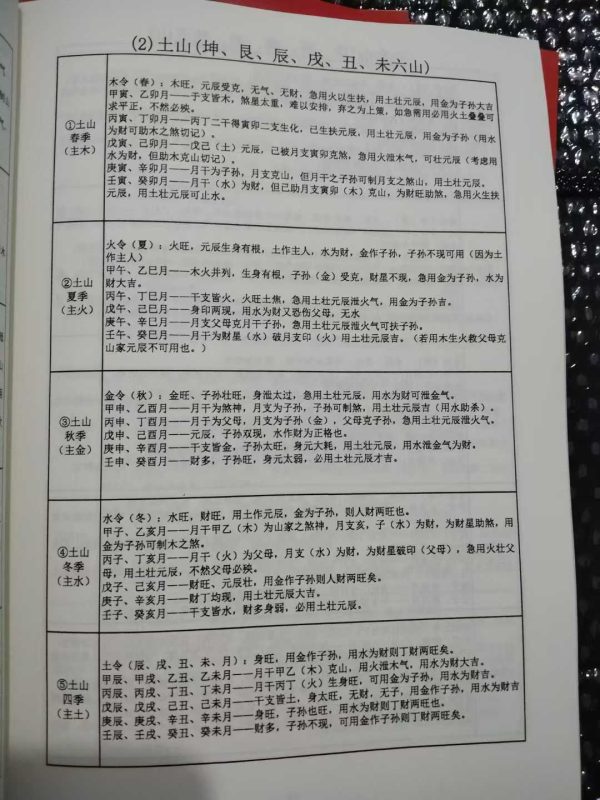 (2)土山(坤、艮、辰、戌、丑、未六山)
①土山
春季
(主木)
木令(春)：木旺，元辰受克，无气、无财，急用火以生扶，用土壮元辰，用金为子孙大吉
甲寅、乙卯月——干支皆木，煞星太重，难以安排，弃之为上策，如急需用必用火土叠叠可
求平正，不然必殃。
丙寅、丁卯月——丙丁二干得寅卯二支生化，已生扶元辰，用土壮元辰，用金为子孙(用水
为财可助木之煞切记)。
戊寅、己卯月——戊己(土)元辰，已被月支寅卯克煞，急用火泄木气，可壮元辰(考虑用
水为财，但助木克山切记)。
庚寅、辛卯月——月干为子孙，月支克山，但月干之子孙可制月支之煞山，用土壮元辰。
壬寅、癸卯月——月干(水)为财，但已助月支寅卯(木)克山，为财旺助煞，急用火生扶
元辰，用土壮元辰可止水。
②土山
夏季
(主火)
火令(夏)：火旺，元辰生身有根，土作主人，水为财，金作子孙，子孙不现可用(因为土
作主人)
甲午、乙巳月——木火并列，生身有根，子孙(金)受克，财星不现，急用金为子孙，水为
财大吉。
丙午、丁巳月——干支皆火，火旺土焦，急用土壮元辰泄火气，用金为子孙吉。
戊午、己巳月——身印两现，用水为财又恐伤父母，无水
庚午、辛巳月——月支父母克月干子孙，急用土壮元辰泄火气可扶子孙。
壬午、癸巳月——月干为财星(水)破月支印(火)用土壮元辰吉。(若用木生火救父母克
山家元辰不可用也。)
③土山
秋季
(主金)
金令(秋)：金旺、子孙壮旺，身泄太过，急用土壮元辰，用水为财可泄金气。
甲申、乙酉月——月干为煞神，月支为子孙，子孙可制煞，用土壮元辰吉(用水助杀)。
丙申、丁酉月——月干为父母，月支为子孙(金)，父母克子孙，急用土壮元辰泄火气。
戊申、己酉月——元辰，子孙双现，水作财为正格也。
庚申、辛酉月——干支皆金，子孙太旺，身元大耗，用土壮元辰，用水泄金气为财。
壬申、癸酉月——财多，子孙旺，身元太弱，必用土壮元辰才吉。
④土山
冬季
(主水)
水令(冬)：水旺，财旺，用土作元辰，金为子孙，则人财两旺也。
甲子、乙亥月——月干甲乙(木)为山家之煞神，月支亥，子(水)为财，为财星助煞，用
金为子孙可制木之煞。
丙子、丁亥月——月干(火)为父母，月支(水)为财，为财星破印(父母)，急用火壮父
母，用土壮元辰，不然父母必殃。
戊子、己亥月——财旺、元辰壮，用金作子孙则人财两旺矣。
庚子、辛亥月——财丁均现，用土壮元辰大吉。
壬子、癸亥月——干支皆水，财多身弱，必用土壮元辰。
⑤土山
四季
(主土)
土令(辰、戌、丑、未、月)：身旺，用金作子孙，用水为财则丁财两旺矣。
甲辰、甲戌、乙丑、乙未月——月干甲乙(木)克山，用火泄木气，用水为财大吉。
丙辰、丙戌、丁丑、丁未月——月干丙丁(火)生身旺，可用金为子孙，用水为财吉。
戊辰、戊戌、己丑、己未月——干支皆土，身太旺，无财，无子，用金作子孙，用水为财吉
庚辰、庚戌、辛丑、辛未月——身旺，子孙也旺，用水为财则丁财两旺也。
壬辰、壬戌、癸丑、癸未月——财多，子孙不现，可用金作子孙则丁财两旺矣。